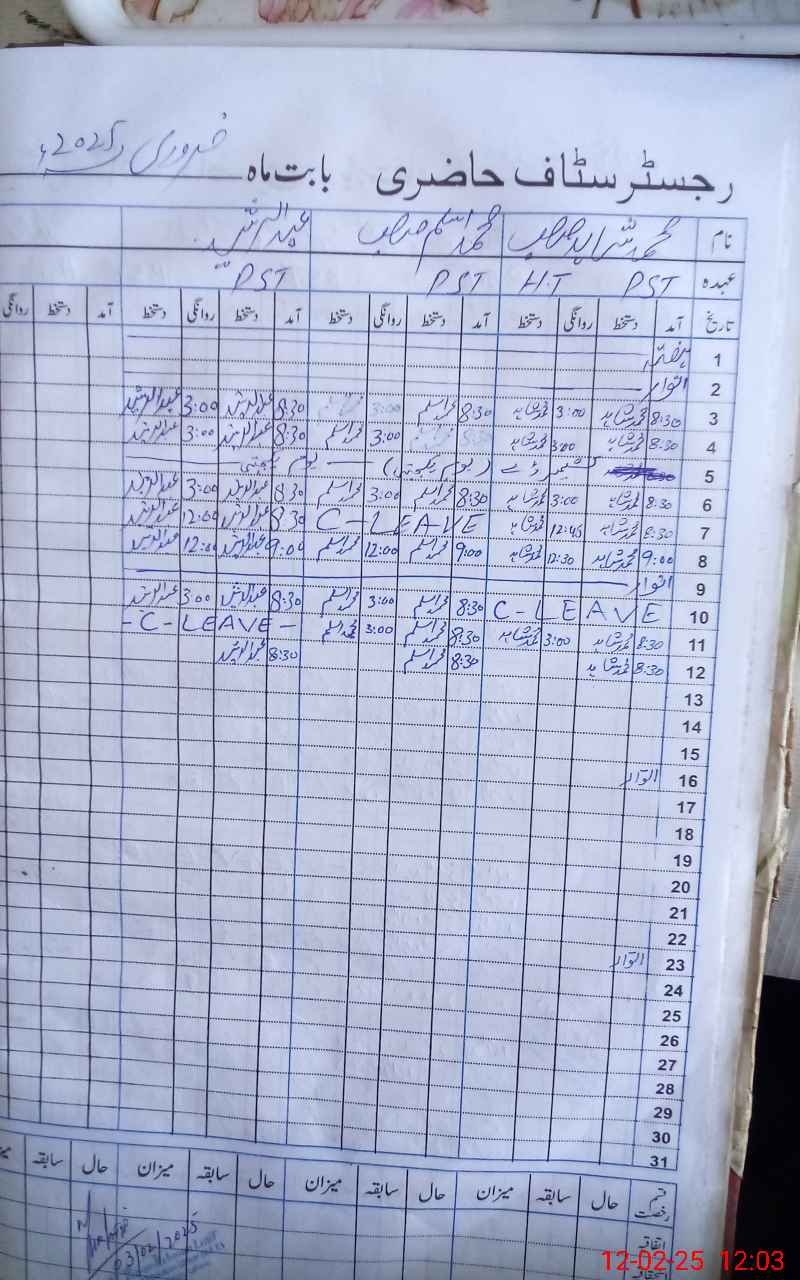 رجسٹر سٹاف حاضری بابت ماہ فروری 2025ء
نام محمد شاہد صاحب محمد اسلم صاحب عبدالرشید
عہدہ PST H.T PST PST
تاریخ آمد دستخط روانگی دستخط آمد دستخط روانگی دستخط آمد دستخط روانگی دستخط آمد دستخط روانگی
1 ہفتہ
2 اتوار
3 8:30 محمد شاہد 3:00 محمد شاہد 8:30 محمد اسلم 3:00 محمد اسلم 8:30 عبدالرشید 3:00 عبدالرشید
4 8:30 محمد شاہد 3:00 محمد شاہد 8:30 محمد اسلم 3:00 محمد اسلم 8:30 عبدالرشید 3:00 عبدالرشید
5 کشمیر ڈے (یوم یکجہتی) یوم یکجہتی
6 8:30 محمد شاہد 3:00 محمد شاہد 8:30 محمد اسلم 3:00 محمد اسلم 8:30 عبدالرشید 3:00 عبدالرشید
7 8:30 محمد شاہد 12:45 محمد شاہد C-LEAVE 8:30 عبدالرشید 12:00 عبدالرشید
8 9:00 محمد شاہد 12:30 محمد شاہد 9:00 محمد اسلم 12:00 محمد اسلم 9:00 عبدالرشید 12:00 عبدالرشید
9 اتوار
10 C-LEAVE 8:30 محمد اسلم 3:00 محمد اسلم 8:30 عبدالرشید 3:00 عبدالرشید
11 8:30 محمد شاہد 3:00 محمد شاہد 8:30 محمد اسلم 3:00 محمد اسلم -C-LEAVE-
12 8:30 محمد شاہد 8:30 محمد اسلم 8:30 عبدالرشید
13
14
15
16 اتوار
17
18
19
20
21
22
23 اتوار
24
25
26
27
28
29
30
31
قسم رخصت حال سابقہ میزان حال سابقہ میزان حال سابقہ میزان حال سابقہ
اتفاقیہ
03/02/2025
12-02-25 12:03